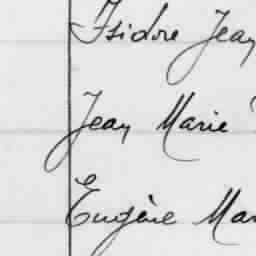 Isidore Jean
Jean Marie
Eugène Mar